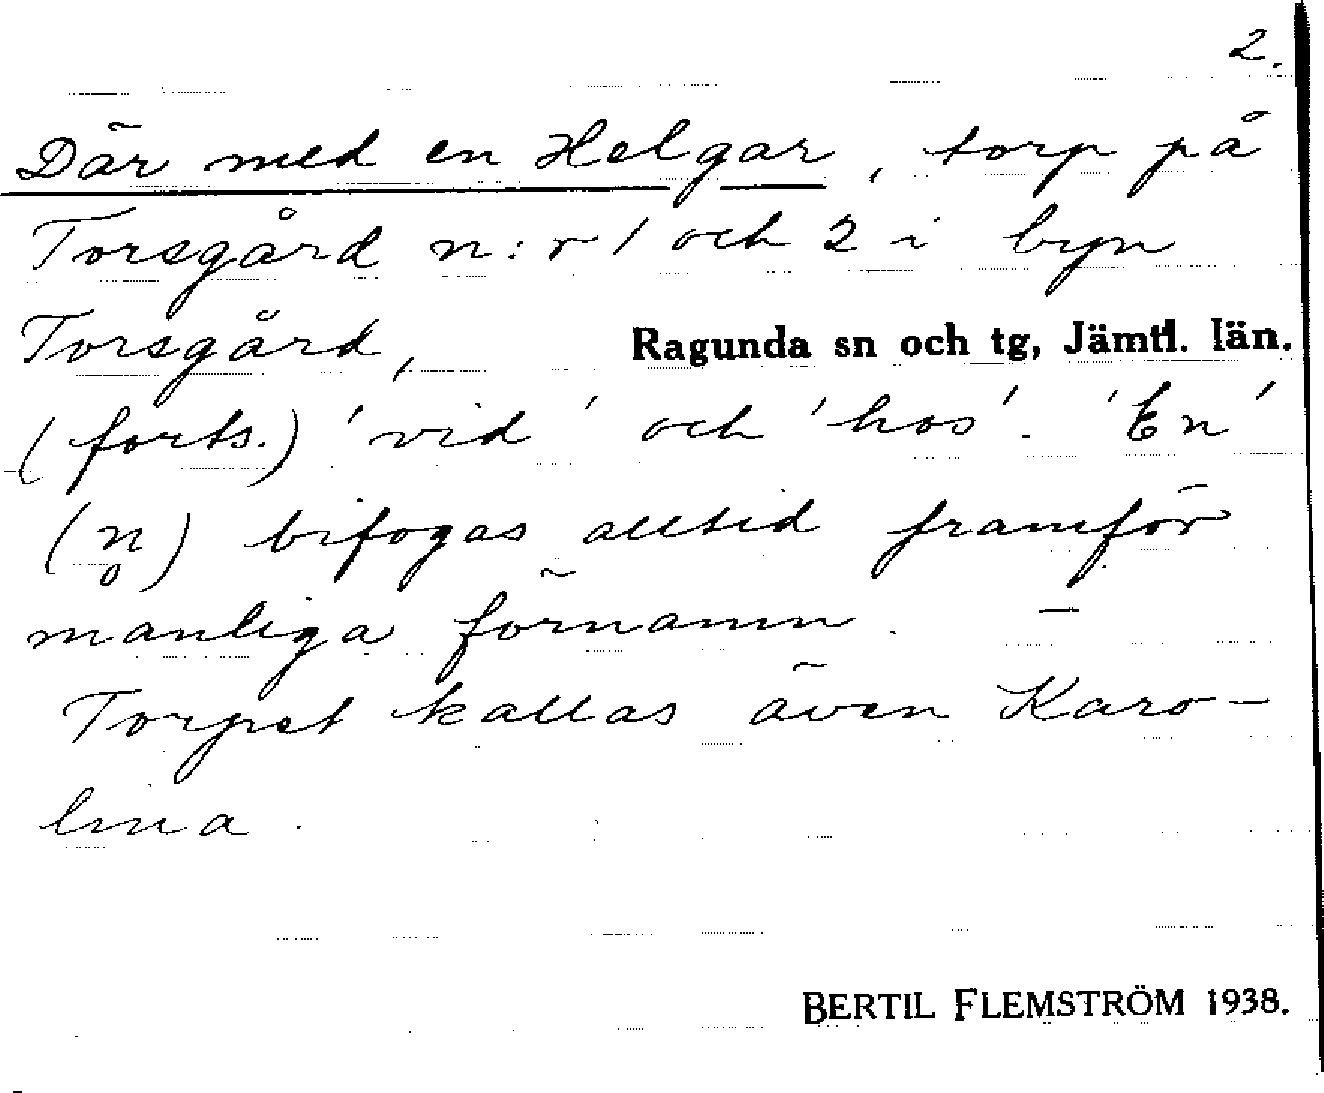 2.
Där med en Helgar, torp på
Torsgård n:r 1 och 2 i byn
Torsgård, Ragunda sn och tg, Jämtl. län.
(forts.) 'vid' och 'hos'. 'En'
(n̥) bifogas alltid framför
manliga förnamn. —
Torpet kallas även Karo-
lina.
BERTIL FLEMSTRÖM 1938.